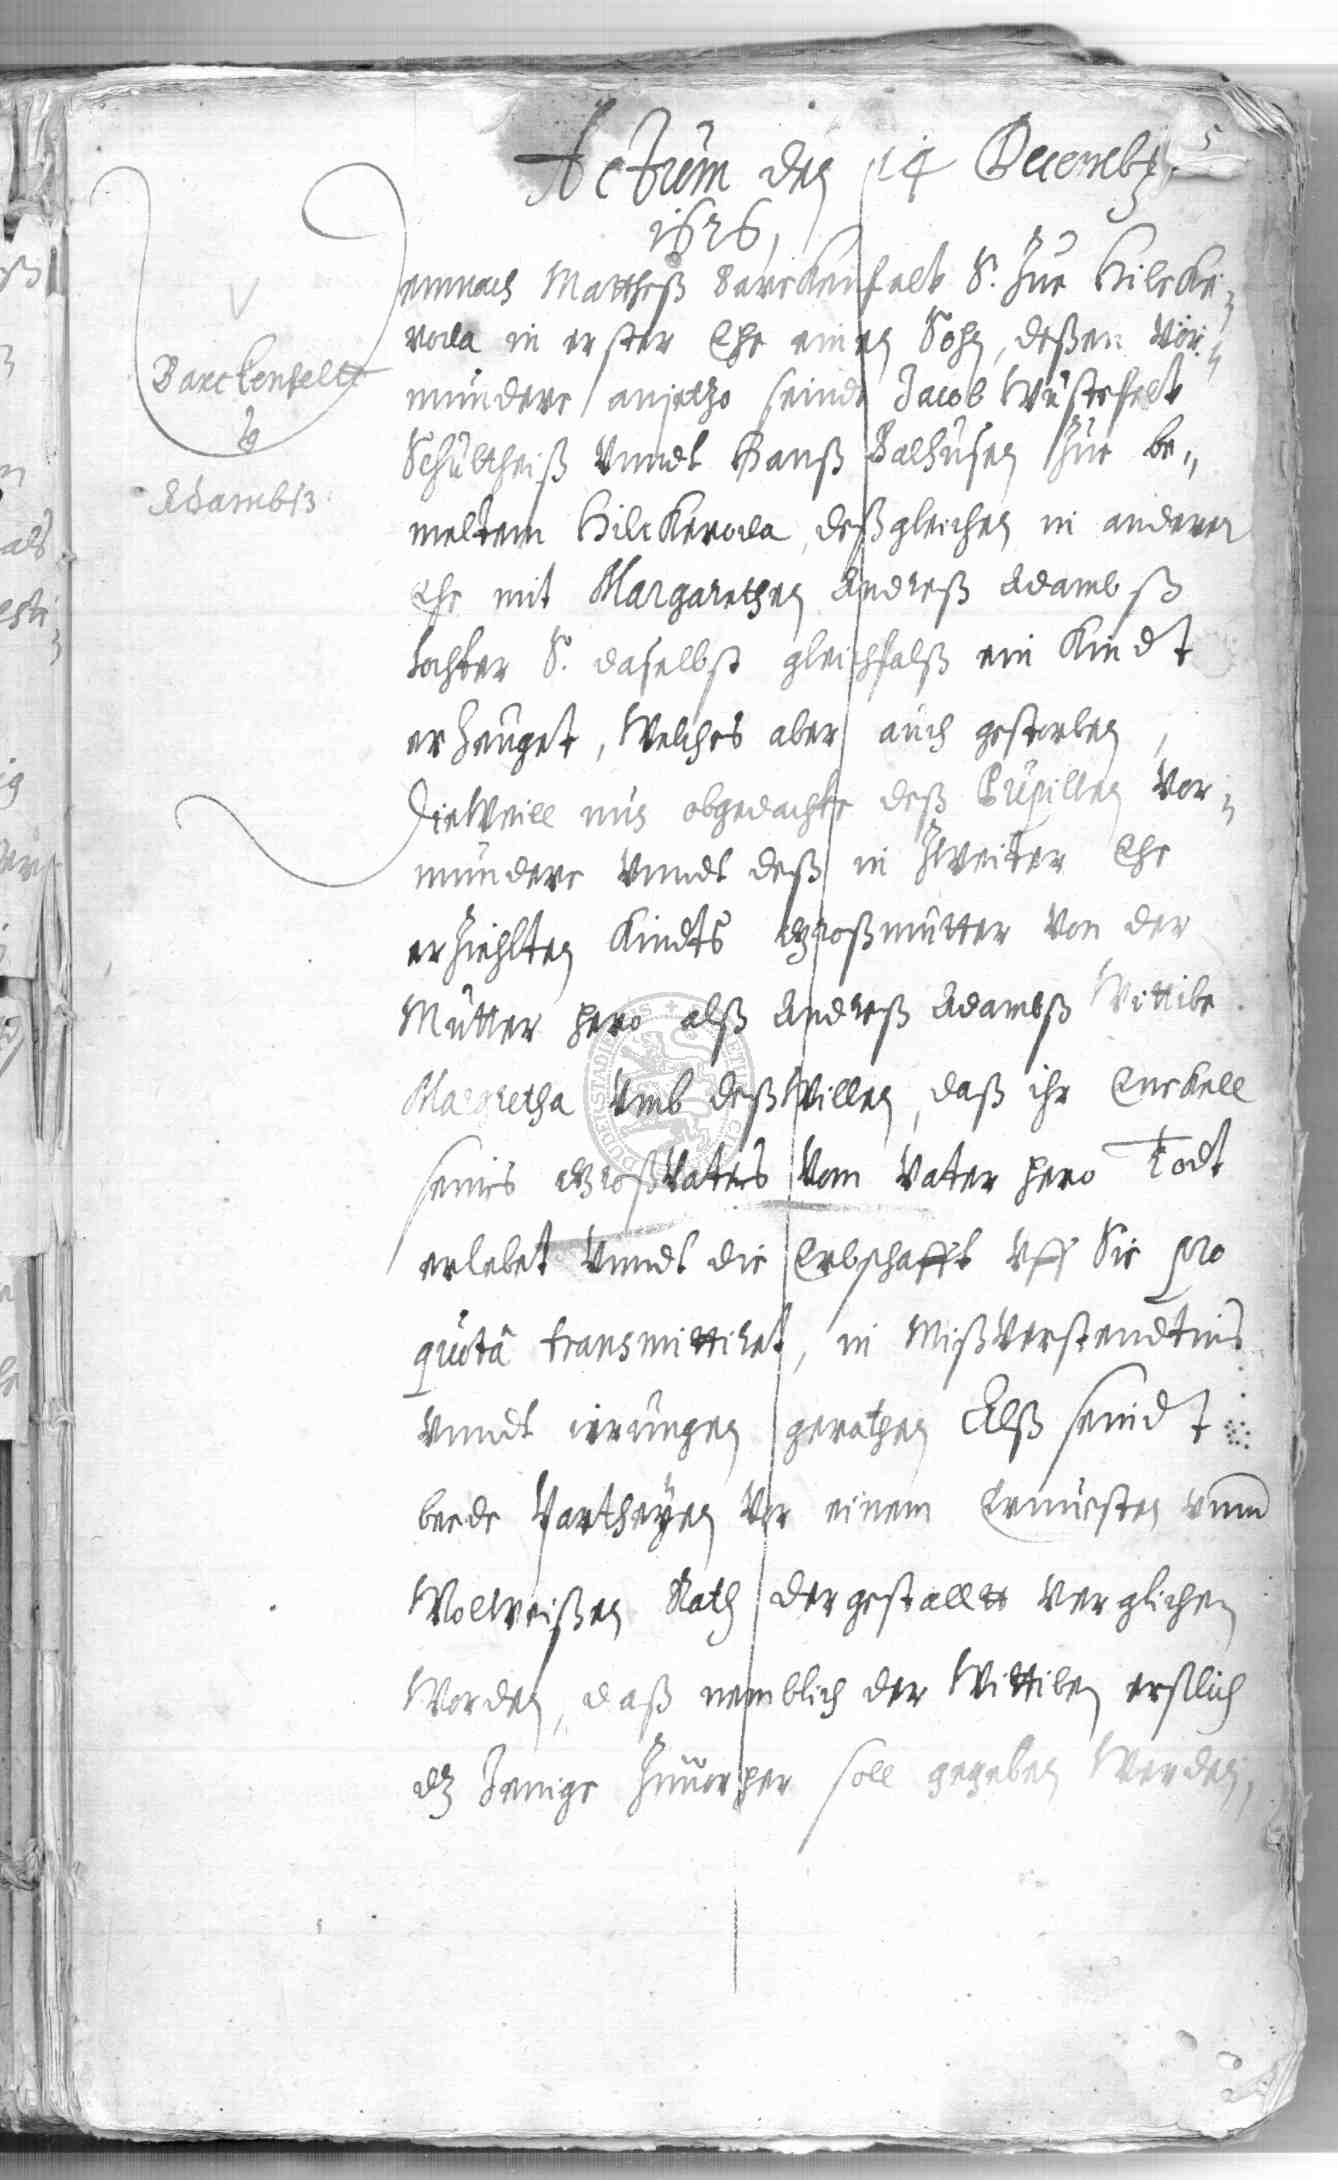 5
Actum den 14 Decembr
1626,
Demnach Matthess Barckenfelt S. zue Hilcke=
roda in erster Ehe einen Sohn, deßen Vor=
mündere anjetzo seindt Jacob Wüstefelt
Schultheiß vnndt Hanß Balhusen zue be„
meltem Hilckeroda, deßgleichen in anderer
Ehe mit Margarethen Andreß Adambß
tochter S. daselbst gleichfalß ein Kindt
erzeuget, Welches aber auch gestorben,
Dieweill nun obgedachte deß Pupillen Vor=
mündere vnndt deß in zweiter Ehe
erziehlten Kindts Großmutter von der
Mutter hero alß Andreß Adambß Wittibe
Margretha vmb deßwillen, daß ihr Enckell
seines Großvaters vom Vater hero Todt
erlebet vnndt die Erbschafft vff Sie pro
quotâ transmittiret, in Mißverstendtnis
vnndt irrungen gerathen Alß seindt
beede Partheyen vor einem Ernuesten vnnd
Wollweißen Rath dergestalltt verglichen
Worden, daß nemblich der Wittiben erstlich
dz Jenige zuuorher soll gegeben Werden,
Barckenfeltt
Adambß